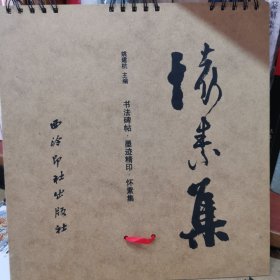 怀素集
姚建杭 主编
书法碑帖·墨迹精印·怀素集
西泠印社出版社